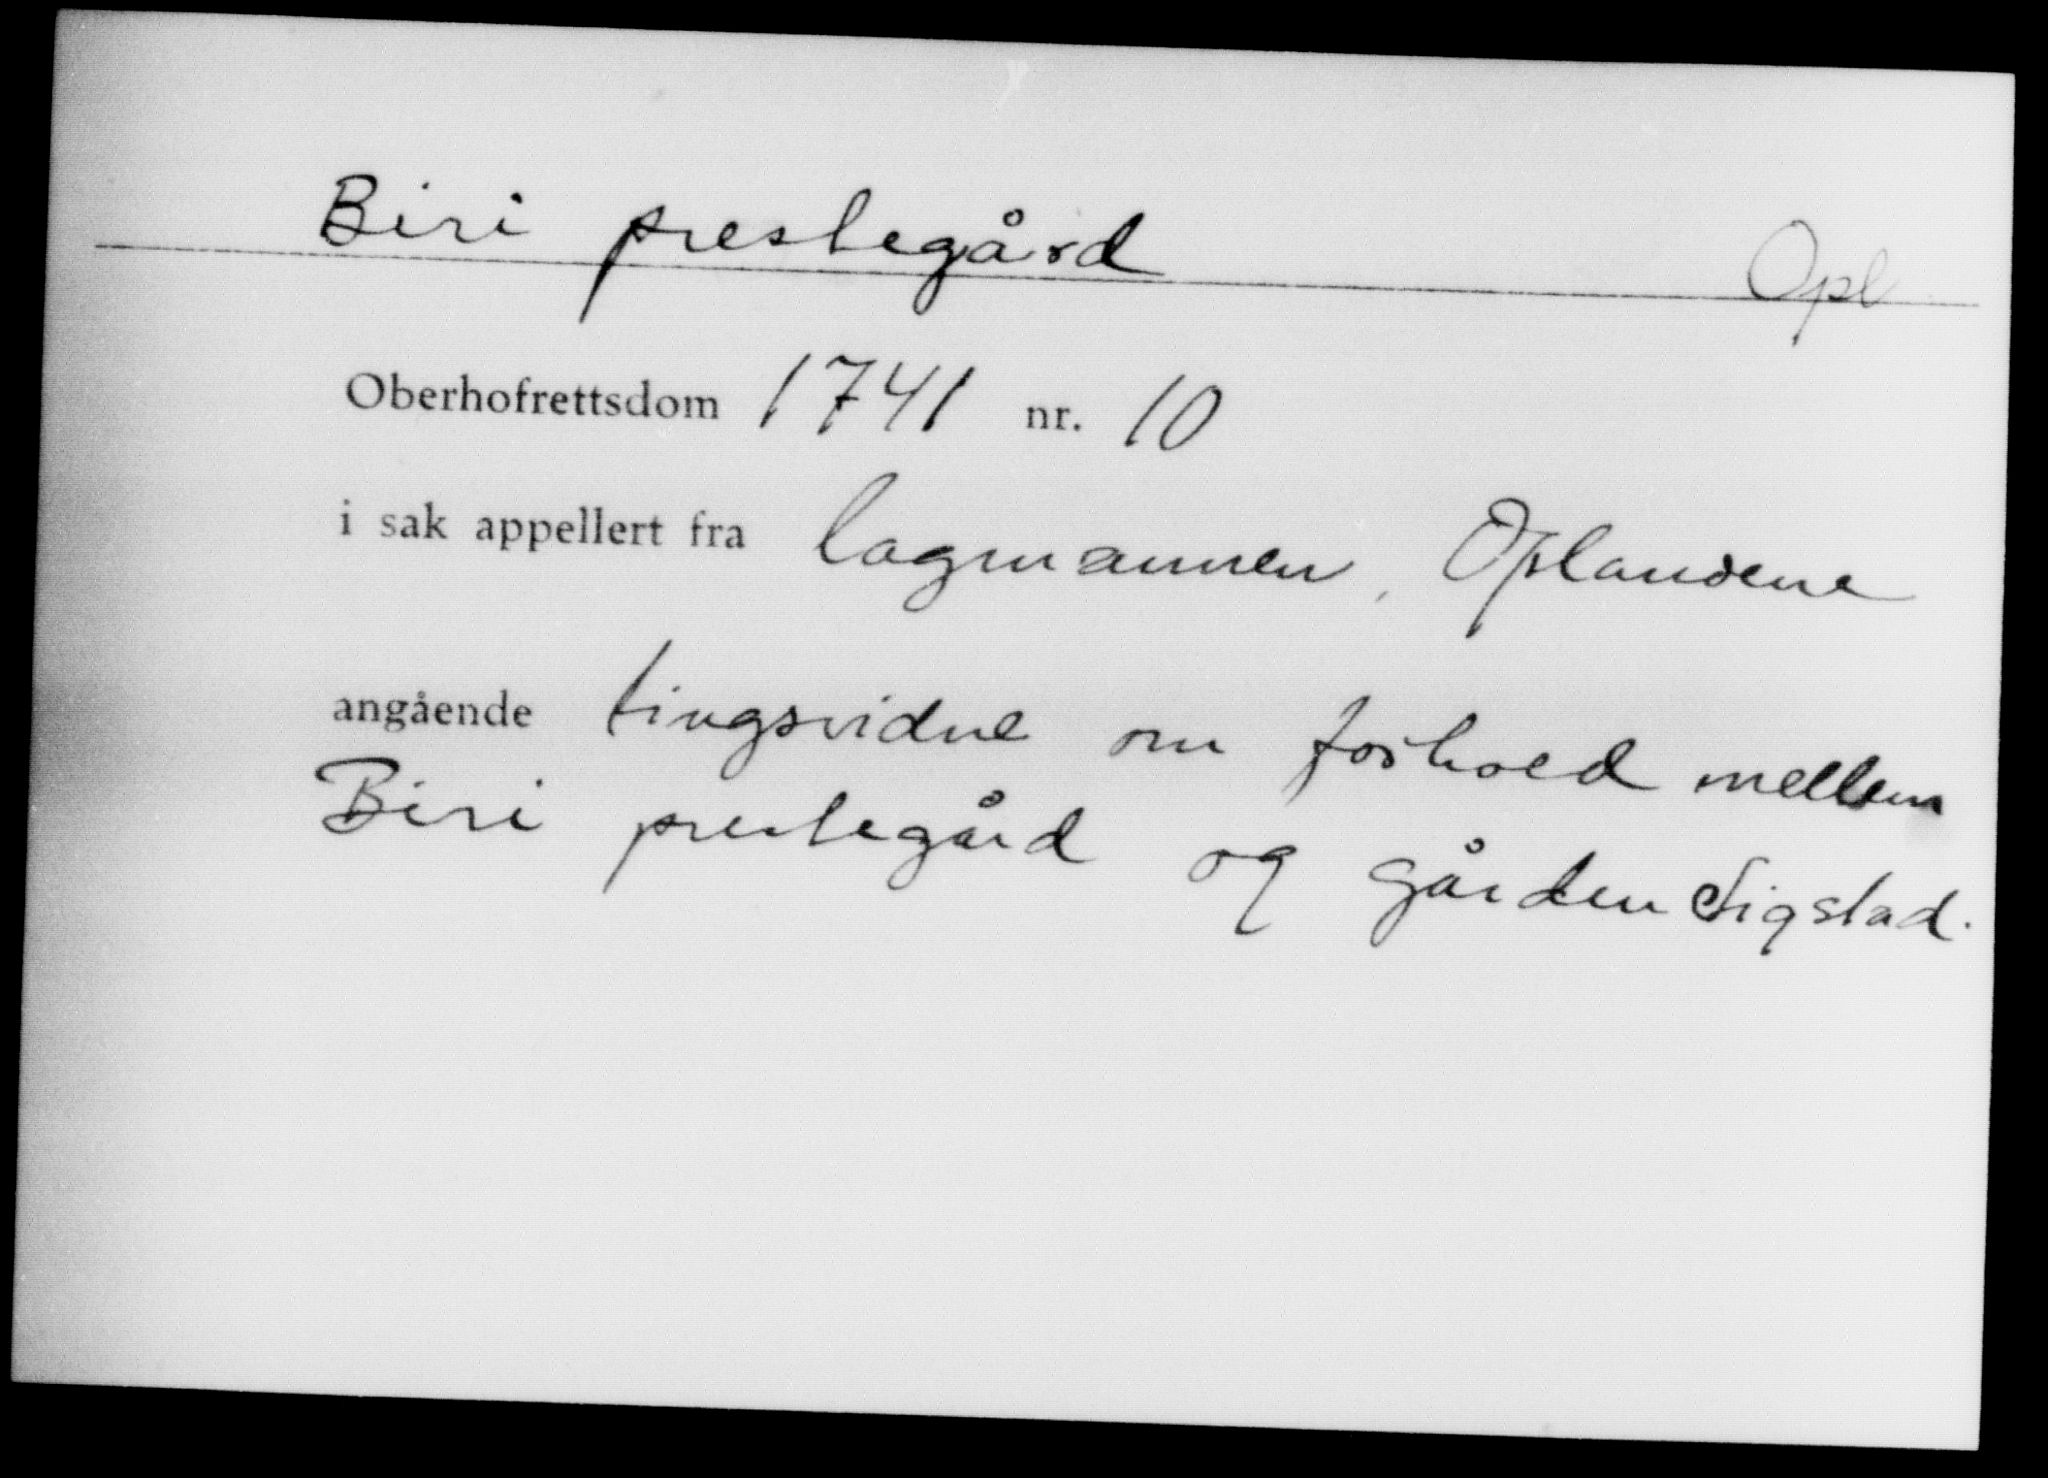 Biri prestegård Opl
Oberhofrettsdom 1741 nr. 10
i sak appellert fra lagmannen, Oplandene
angående tingsvidne om forhold mellem
Biri prestegård og gården Sigstad.